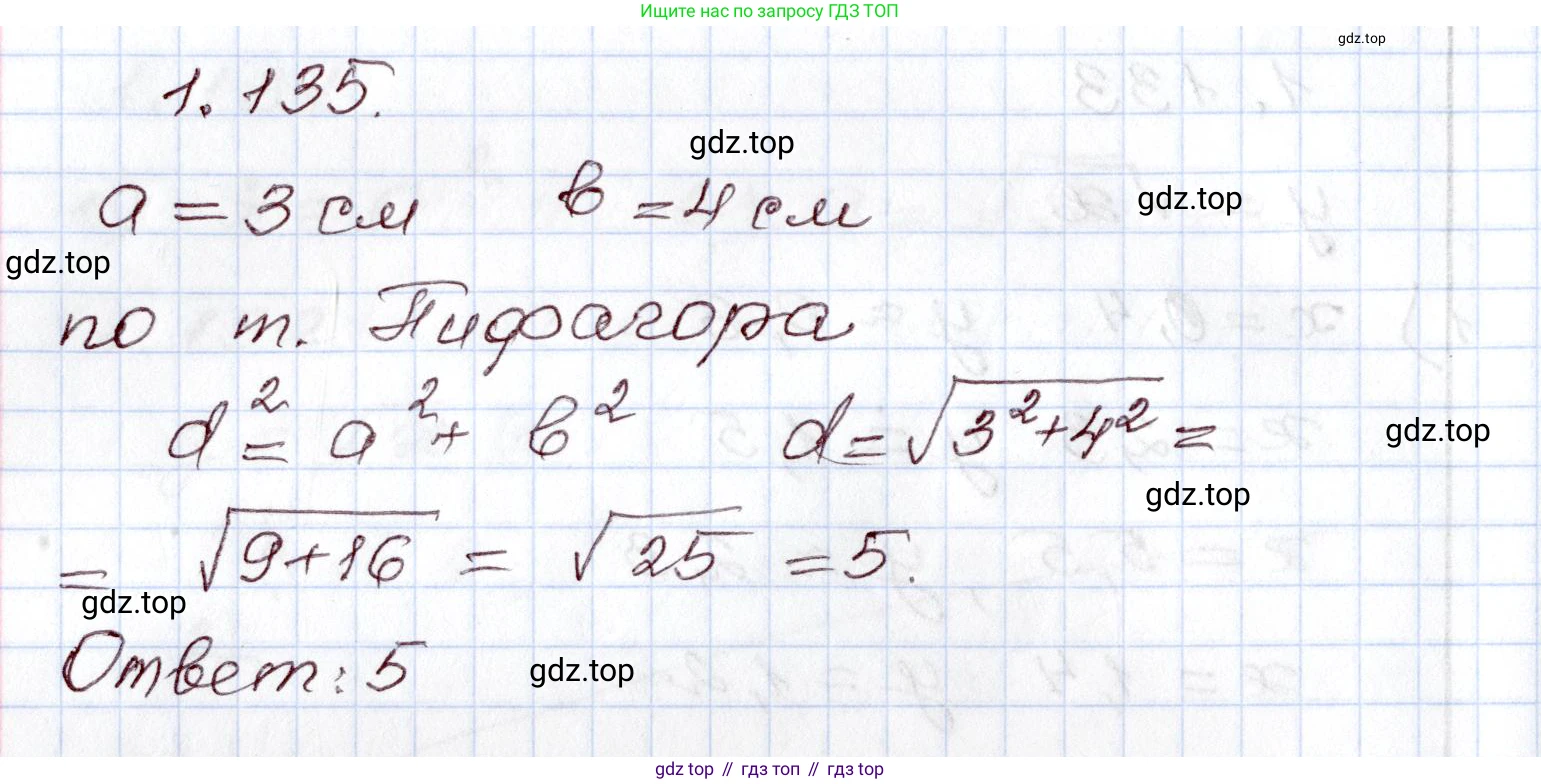 Ищите нас по запросу ГДЗ ТОП
gdz.top
1.135.
gdz.top
a = 3 см в = 4 см
gdz.top
gdz.top
по т. Пифагора
d² = a² + в² d = √(3²+4²) =
gdz.top
gdz.top
= √(9+16) = √25 = 5.
gdz.top
Ответ: 5
gdz.top
gdz top // гдз топ // гдз top